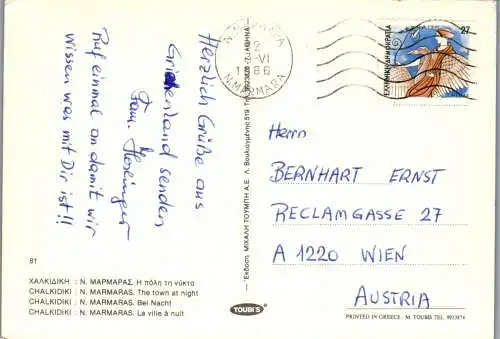 Herzlich Grüße aus
Griechenland senden
Fam.
Ruf einmal an damit wir
wissen was mit Dir ist!!
81
ΧΑΛΚΙΔΙΚΗ : Ν. ΜΑΡΜΑΡΑΣ. Η πόλη τη νύκτα
CHALKIDIKI : N. MARMARAS. The town at night
CHALKIDIKI : N. MARMARAS. Bei Nacht
CHALKIDIKI : N. MARMARAS. La ville à nuit
YOUBI'S
Έκδοση: ΜΙΧΑΛΗ ΤΟΥΜΠΗ Α.Ε. Λ. Βουλιαγμένης 519
N. MARMARA
27
ΕΛΛΗΝΙΚΗ ΔΗΜΟΚΡΑΤΙΑ
Herrn
BERNHART ERNST
RECLAMGASSE 27
A 1220 WIEN
AUSTRIA
PRINTED IN GREECE M. TOUBIS TEL. 9923874